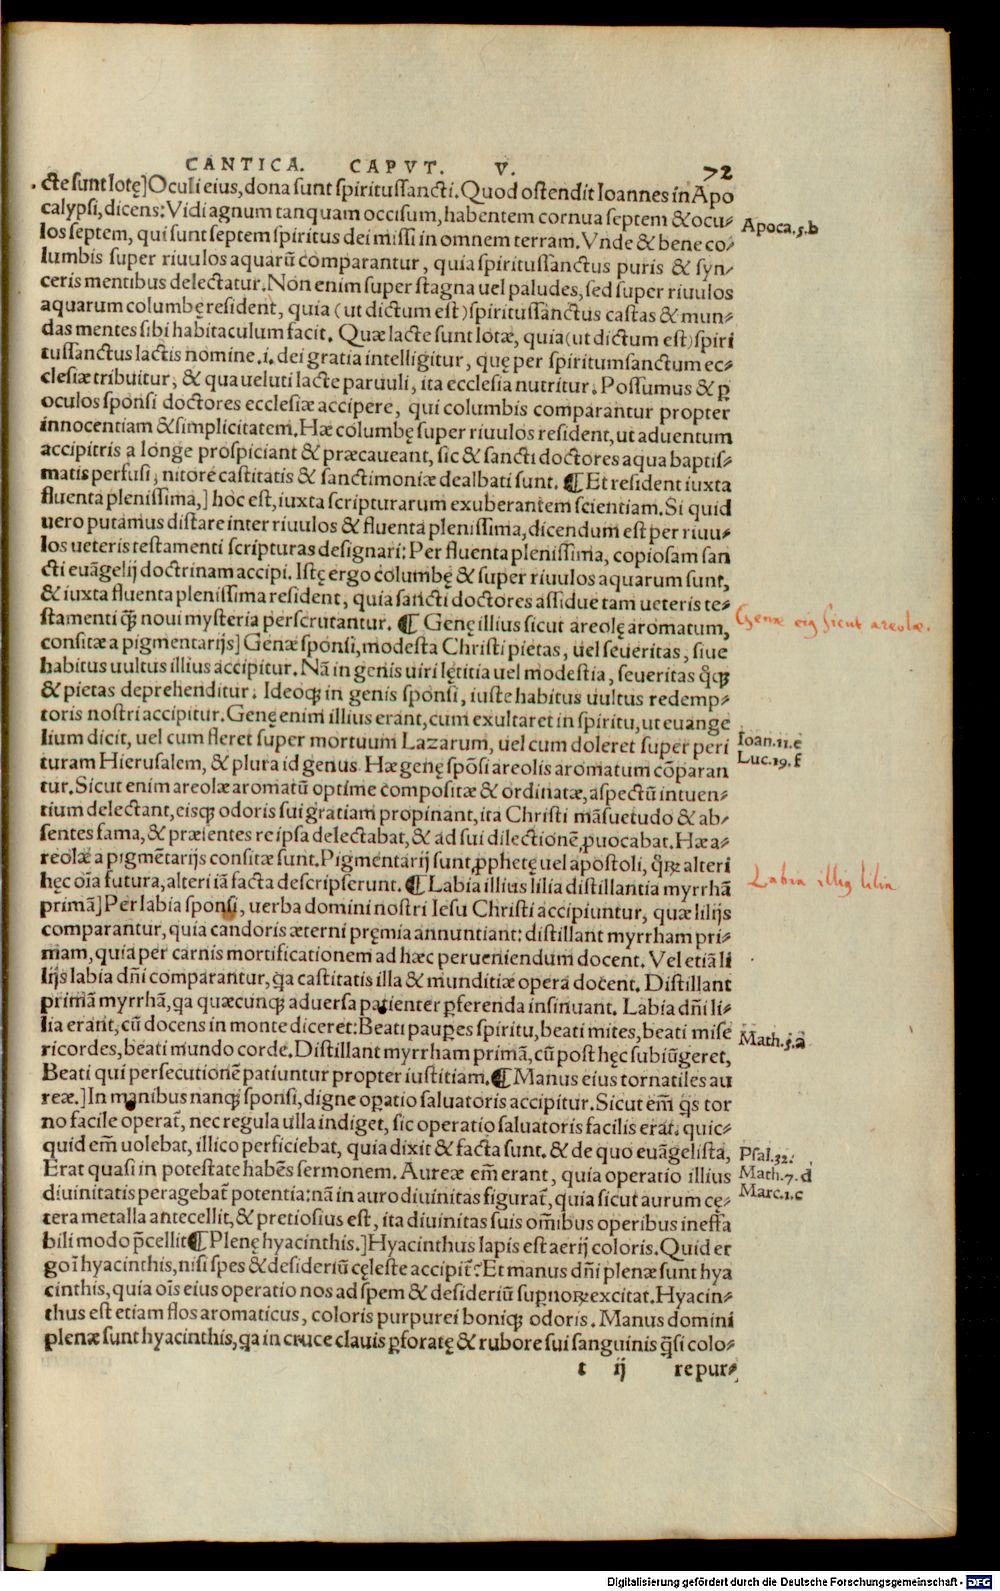 CANTICA. CAPVT. V. 72
cte sunt lotę] Oculi eius, dona sunt spiritussancti. Quod ostendit Ioannes in Apo
calypsi, dicens: Vidi agnum tanquam occisum, habentem cornua septem & ocu-
Apoca.5.b
los septem, qui sunt septem spiritus dei missi in omnem terram. Vnde & bene co-
lumbis super riuulos aquarũ comparantur, quia spiritussanctus puris & syn-
ceris mentibus delectatur. Non enim super stagna uel paludes, sed super riuulos
aquarum columbę resident, quia (ut dictum est) spiritussanctus castas & mun-
das mentes sibi habitaculum facit. Quæ lacte sunt lotæ, quia (ut dictum est) spiri
tussanctus lactis nomine .i. dei gratia intelligitur, quę per spiritumsanctum ec-
clesiæ tribuitur, & qua ueluti lacte paruuli, ita ecclesia nutritur. Possumus & ꝑ
oculos sponsi doctores ecclesiæ accipere, qui columbis comparantur propter
innocentiam & simplicitatem. Hæ columbę super riuulos resident, ut aduentum
accipitris a longe prospiciant & præcaueant, sic & sancti doctores aqua baptis-
matis perfusi, nitore castitatis & sanctimoniæ dealbati sunt. ¶ Et resident iuxta
fluenta plenissima,] hoc est, iuxta scripturarum exuberantem scientiam. Si quid
uero putamus distare inter riuulos & fluenta plenissima, dicendum est per riuu-
los ueteris testamenti scripturas designari: Per fluenta plenissima, copiosam san
cti euãgelij doctrinam accipi. Istę ergo columbę & super riuulos aquarum sunt,
& iuxta fluenta plenissima resident, quia sancti doctores assidue tam ueteris te-
stamenti ꝙ̃ noui mysteria perscrutantur. ¶ Genę illius sicut areolę aromatum,
Genæ eiꝰ sicut areolæ.
consitæ a pigmentarijs] Genæ sponsi, modesta Christi pietas, uel seueritas, siue
habitus uultus illius accipitur. Nã in genis uiri lętitia uel modestia, seueritas q̃q;
& pietas deprehenditur. Ideoq; in genis sponsi, iuste habitus uultus redemp-
toris nostri accipitur. Genę enim illius erant, cum exultaret in spiritu, ut euange
lium dicit, uel cum fleret super mortuum Lazarum, uel cum doleret super peri
Ioan.11.e
turam Hierusalem, & plura id genus. Hæ genę spõsi areolis aromatum cõparan
Luc.19.f
tur. Sicut enim areolæ aromatũ optime compositæ & ordinatæ, aspectũ intuen-
tium delectant, eisq; odoris sui gratiam propinant, ita Christi mãsuetudo & ab-
sentes fama, & præsentes reipsa delectabat, & ad sui dilectionẽ ꝓuocabat. Hæ a-
reolæ a pigmẽtarijs consitæ sunt. Pigmentarij sunt ꝓphetę uel apostoli, q̃ꝝ alteri
hęc oĩa futura, alteri iã facta descripserunt. ¶ Labia illius lilia distillantia myrrhã
Labia illiꝰ lilia
primã] Per labia sponsi, uerba domini nostri Iesu Christi accipiuntur, quæ lilijs
comparantur, quia candoris æterni pręmia annuntiant: distillant myrrham pri-
mam, quia per carnis mortificationem ad hæc perueniendum docent. Vel etiã li
lijs labia dñi comparantur, qa castitatis illa & munditiæ opera docent. Distillant
primã myrrhã, qa quæcunq; aduersa patienter ꝑferenda insinuant. Labia dñi li-
lia erant, cũ docens in monte diceret: Beati pauꝑes spiritu, beati mites, beati mise
Math.5.a
ricordes, beati mundo corde. Distillant myrrham primã, cũ post hęc subiũgeret,
Beati qui persecutionẽ patiuntur propter iustitiam. ¶ Manus eius tornatiles au
reæ.] In manibus nanq; sponsi, digne oꝑatio saluatoris accipitur. Sicut em̃ qs tor
no facile operat̃, nec regula ulla indiget, sic operatio saluatoris facilis erat. quic-
quid em̃ uolebat, illico perficiebat, quia dixit & facta sunt. & de quo euãgelista,
Psal.32.
Erat quasi in potestate habẽs sermonem. Aureæ em̃ erant, quia operatio illius
Math.7.d
diuinitatis peragebat̃ potentia: nã in auro diuinitas figurat̃, quia sicut aurum cę-
Marc.1.c
tera metalla antecellit, & pretiosius est, ita diuinitas suis om̃ibus operibus ineffa
bili modo p̃cellit ¶ Plenę hyacinthis.] Hyacinthus lapis est aerij coloris. Quid er
goĩ hyacinthis, nisi spes & desideriũ cęleste accipit̃? Et manus dñi plenæ sunt hya
cinthis, quia oĩs eius operatio nos ad spem & desideriũ suꝑnoꝝ excitat. Hyacin-
thus est etiam flos aromaticus, coloris purpurei boniq; odoris. Manus domini
plenæ sunt hyacinthis, qa in cruce clauis ꝑforatę & rubore sui sanguinis q̃si colo-
t ij repur-
Digitalisierung gefördert durch die Deutsche Forschungsgemeinschaft - DFG